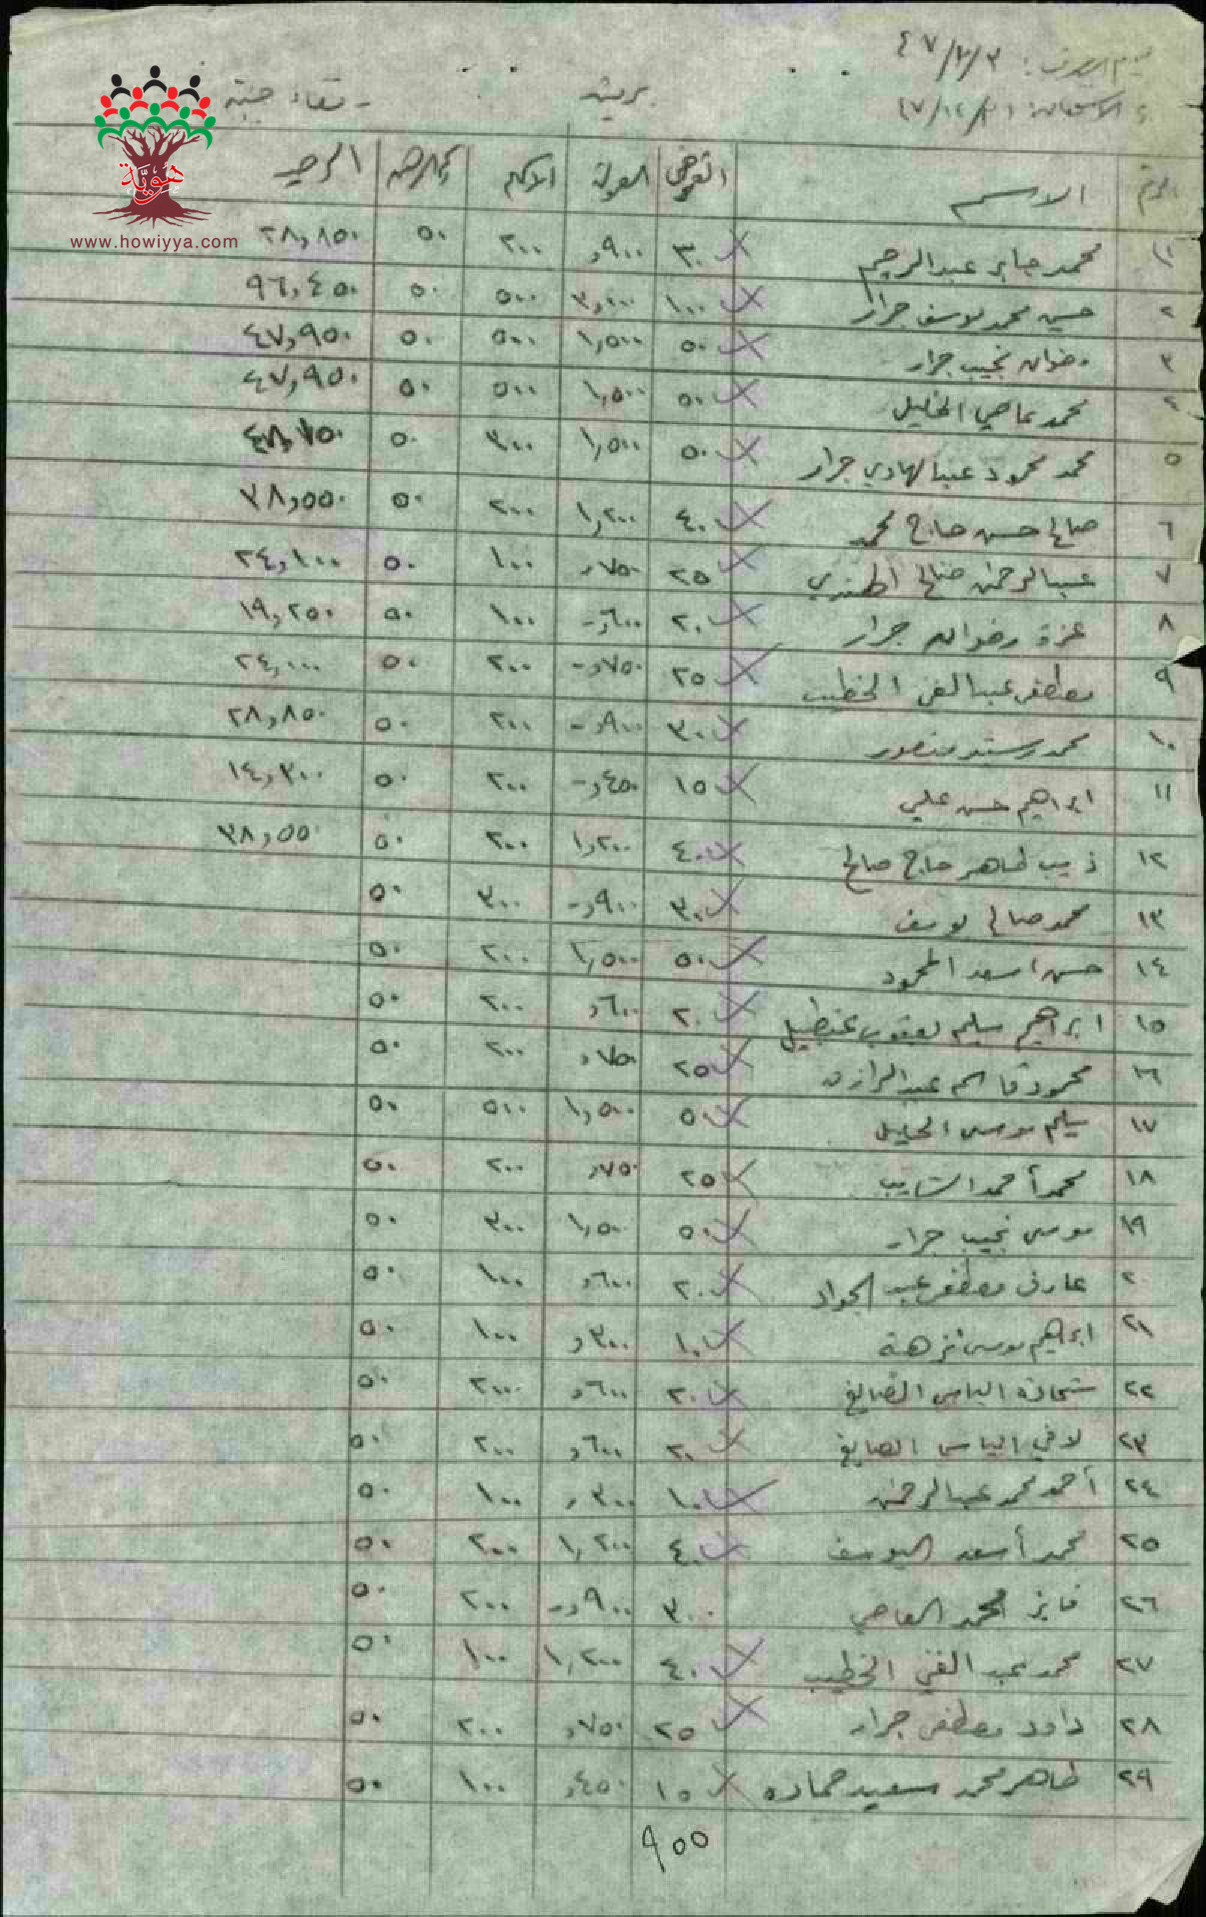 يوم الصرف: ٤٧/٢/٣
الاستحقاق: ٤٧/١٢/٣١
بريشة
قضاء جنين
هوية
www.howiyya.com
الاسم القرض العمولة الرصيد
١ محمد جابر عبدالرحيم ٣٠ ٩٠٠ر ٢٠٠ ٥٠ ٢٨,٨٥٠
٢ حسين محمد يوسف جرار ١٠٠ ٣,٠٠٠ ٥٠٠ ٥٠ ٩٦,٤٥٠
٣ رضوان نجيب جرار ٥٠ ١,٥٠٠ ٥٠٠ ٥٠ ٤٧,٩٥٠
٤ محمد عاصي الخليل ٥٠ ١,٥٠٠ ٥٠٠ ٥٠ ٤٧,٩٥٠
٥ محمد محمود عبدالهادي جرار ٥٠ ١,٥٠٠ ٣٠٠ ٥٠
٦ صالح حسن حاج محمد ٤٠ ١,٢٠٠ ٢٠٠ ٥٠ ٣٨,٥٥٠
٧ عبدالرحمن صالح ٢٥ ٧٥٠ر ١٠٠ ٥٠ ٢٤,١٠٠
٨ عزة رضوان جرار ٢٠ ٦٠٠ر- ١٠٠ ٥٠ ١٩,٢٥٠
٩ مصطفى عبد الغني الخطيب ٢٥ ٧٥٠ر- ٢٠٠ ٥٠ ٢٤,٠٠٠
١٠ محمد رشيد منصور ٣٠ ٩٠٠ر- ٢٠٠ ٥٠ ٢٨,٨٥٠
١١ ابراهيم حسن علي ١٥ ٤٥٠ر- ٢٠٠ ٥٠ ١٤,٣٠٠
١٢ ذيب طاهر حاج صالح ٤٠ ١,٢٠٠ ٢٠٠ ٥٠ ٣٨,٥٥
١٣ محمد صالح يوسف ٣٠ ٩٠٠ر- ٣٠٠ ٥٠
١٤ حسن اسعد المحمود ٥٠ ١,٥٠٠ ٢٠٠ ٥٠
١٥ ابراهيم سليم يعقوب ٢٠ ٦٠٠ر ٢٠٠ ٥٠
١٦ محمود قاسم عبدالرازق ٢٥ ٧٥٠ر ٢٠٠ ٥٠
١٧ سليم موسى الخليل ٥٠ ١,٥٠٠ ٥٠٠ ٥٠
١٨ محمد أحمد الشايب ٢٥ ٧٥٠ر ٢٠٠ ٥٠
١٩ موسى نجيب جرار ٥٠ ١,٥٠٠ ٣٠٠ ٥٠
٢٠ عارف مصطفى عبد الجواد ٢٠ ٦٠٠ر ١٠٠ ٥٠
٢١ ابراهيم موسى نزهة ١٠ ٣٠٠ر ١٠٠ ٥٠
٢٢ شحادة الياس الصايغ ٢٠ ٦٠٠ر ٢٠٠ ٥٠
٢٣ لافي الياس الصايغ ٢٠ ٦٠٠ر ٢٠٠ ٥٠
٢٤ أحمد محمد عبدالرحمن ١٠ ٣٠٠ر ١٠٠ ٥٠
٢٥ محمد أسعد اليوسف ٤٠ ١,٢٠٠ ٢٠٠ ٥٠
٢٦ فايز المحمد العاصي ٣٠٠ ٩٠٠ر- ٢٠٠ ٥٠
٢٧ محمد عبد الغني الخطيب ٤٠ ١,٢٠٠ ١٠٠ ٥٠
٢٨ داود مصطفى جرار ٢٥ ٧٥٠ر ٢٠٠ ٥٠
٢٩ طاهر محمد سعيد حماده ١٥ ٤٥٠ر ١٠٠ ٥٠
٩٥٥